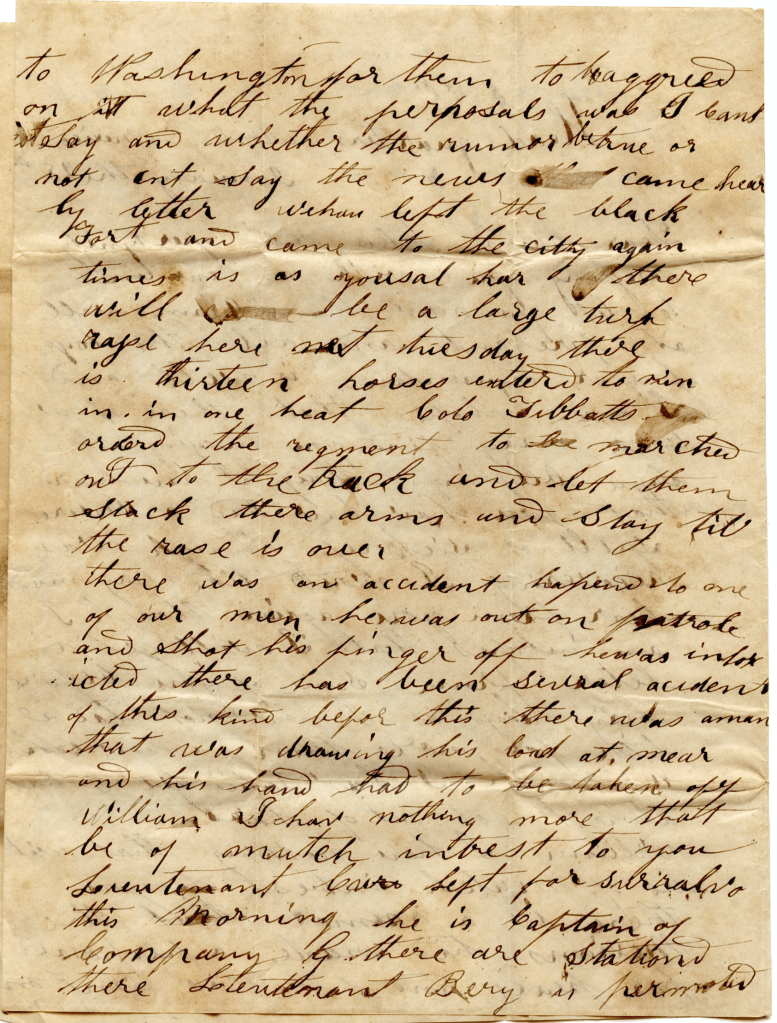 to Washington for them to be aggreed
on it what the perposals was I cant
say and whether the rumor be true or
not cnt say the news came hear
by letter wehav left the black
Fort and came to the citty again
times is as yousal har there
will be a large turf
rase here next tuesday there
is thirteen horses enterd to run
in. in one heat Colo Tibbatts
orderd the regment to be marched
out to the track and let them
stack there arms and stay till
the rase is over
there was an accident hapend to one
of our men he was out on patrole
and shot his finger off hewas intox
icted there has been several acident
of this kind befor this there was aman
that was drawing his load at mear
and his hand had to be taken off
William I hav nothing more that
be of mutch intrest to you
Lieutenant left for Surralvo
this Morning he is Captain of
Company G there are stationd
there Lieutenant Bery is permoted